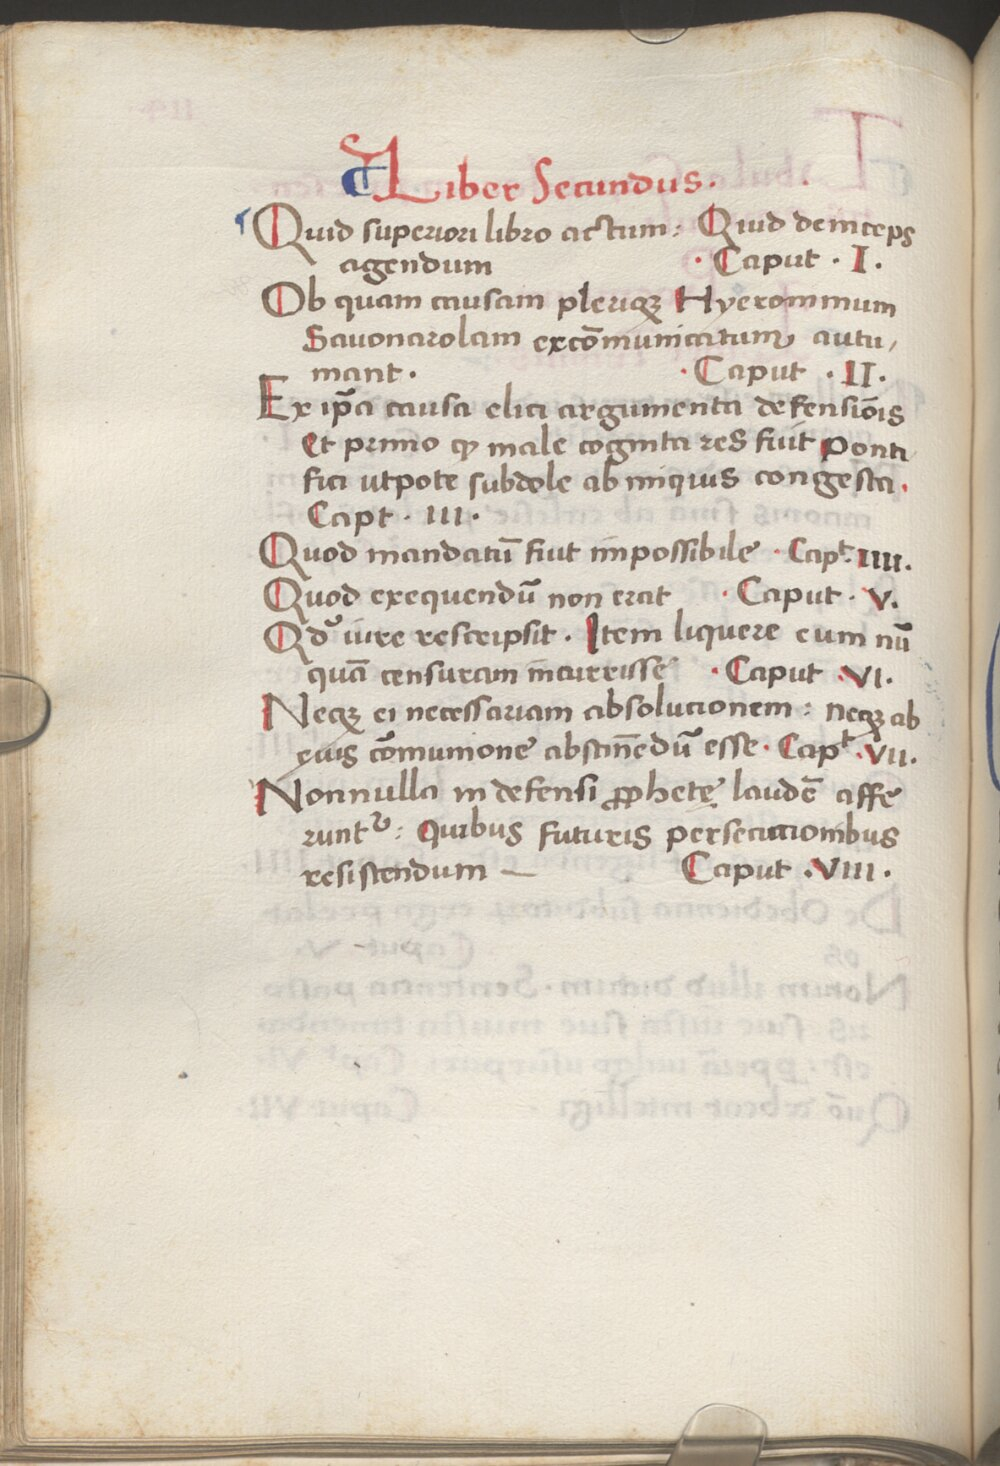 Liber Secundus.
Quid superiori libro actum: Quid deinceps
agendum · Caput · I.
Ob quam causam pleriqꝫ Hyeronimum
Savonarolam excōmunicatum autu,
mant. · Caput · II.
Ex ip̄a causa elici argumenta defensiōis
et primo ꝙ male cognita res fuit Ponti
fici utpote subdole ab iniquis congesta.
Capt. III.
Quod mandatū fuit impossibile · Capt. IIII.
Quod exequendū non erat · Caput · V.
Qdº iure rescripsit. Item liquere eum nū
quā censuram incurrisse · Caput · VI.
Neqꝫ ei necessariam absolucionem: neqꝫ ab
eius cōmunione abstinēdū esse. Capt. VII.
Nonnulla in defensi ꝓphetę laudē affe
runt᷑: Quibus futuris persecucionibus
resistendum — Caput · VIII.